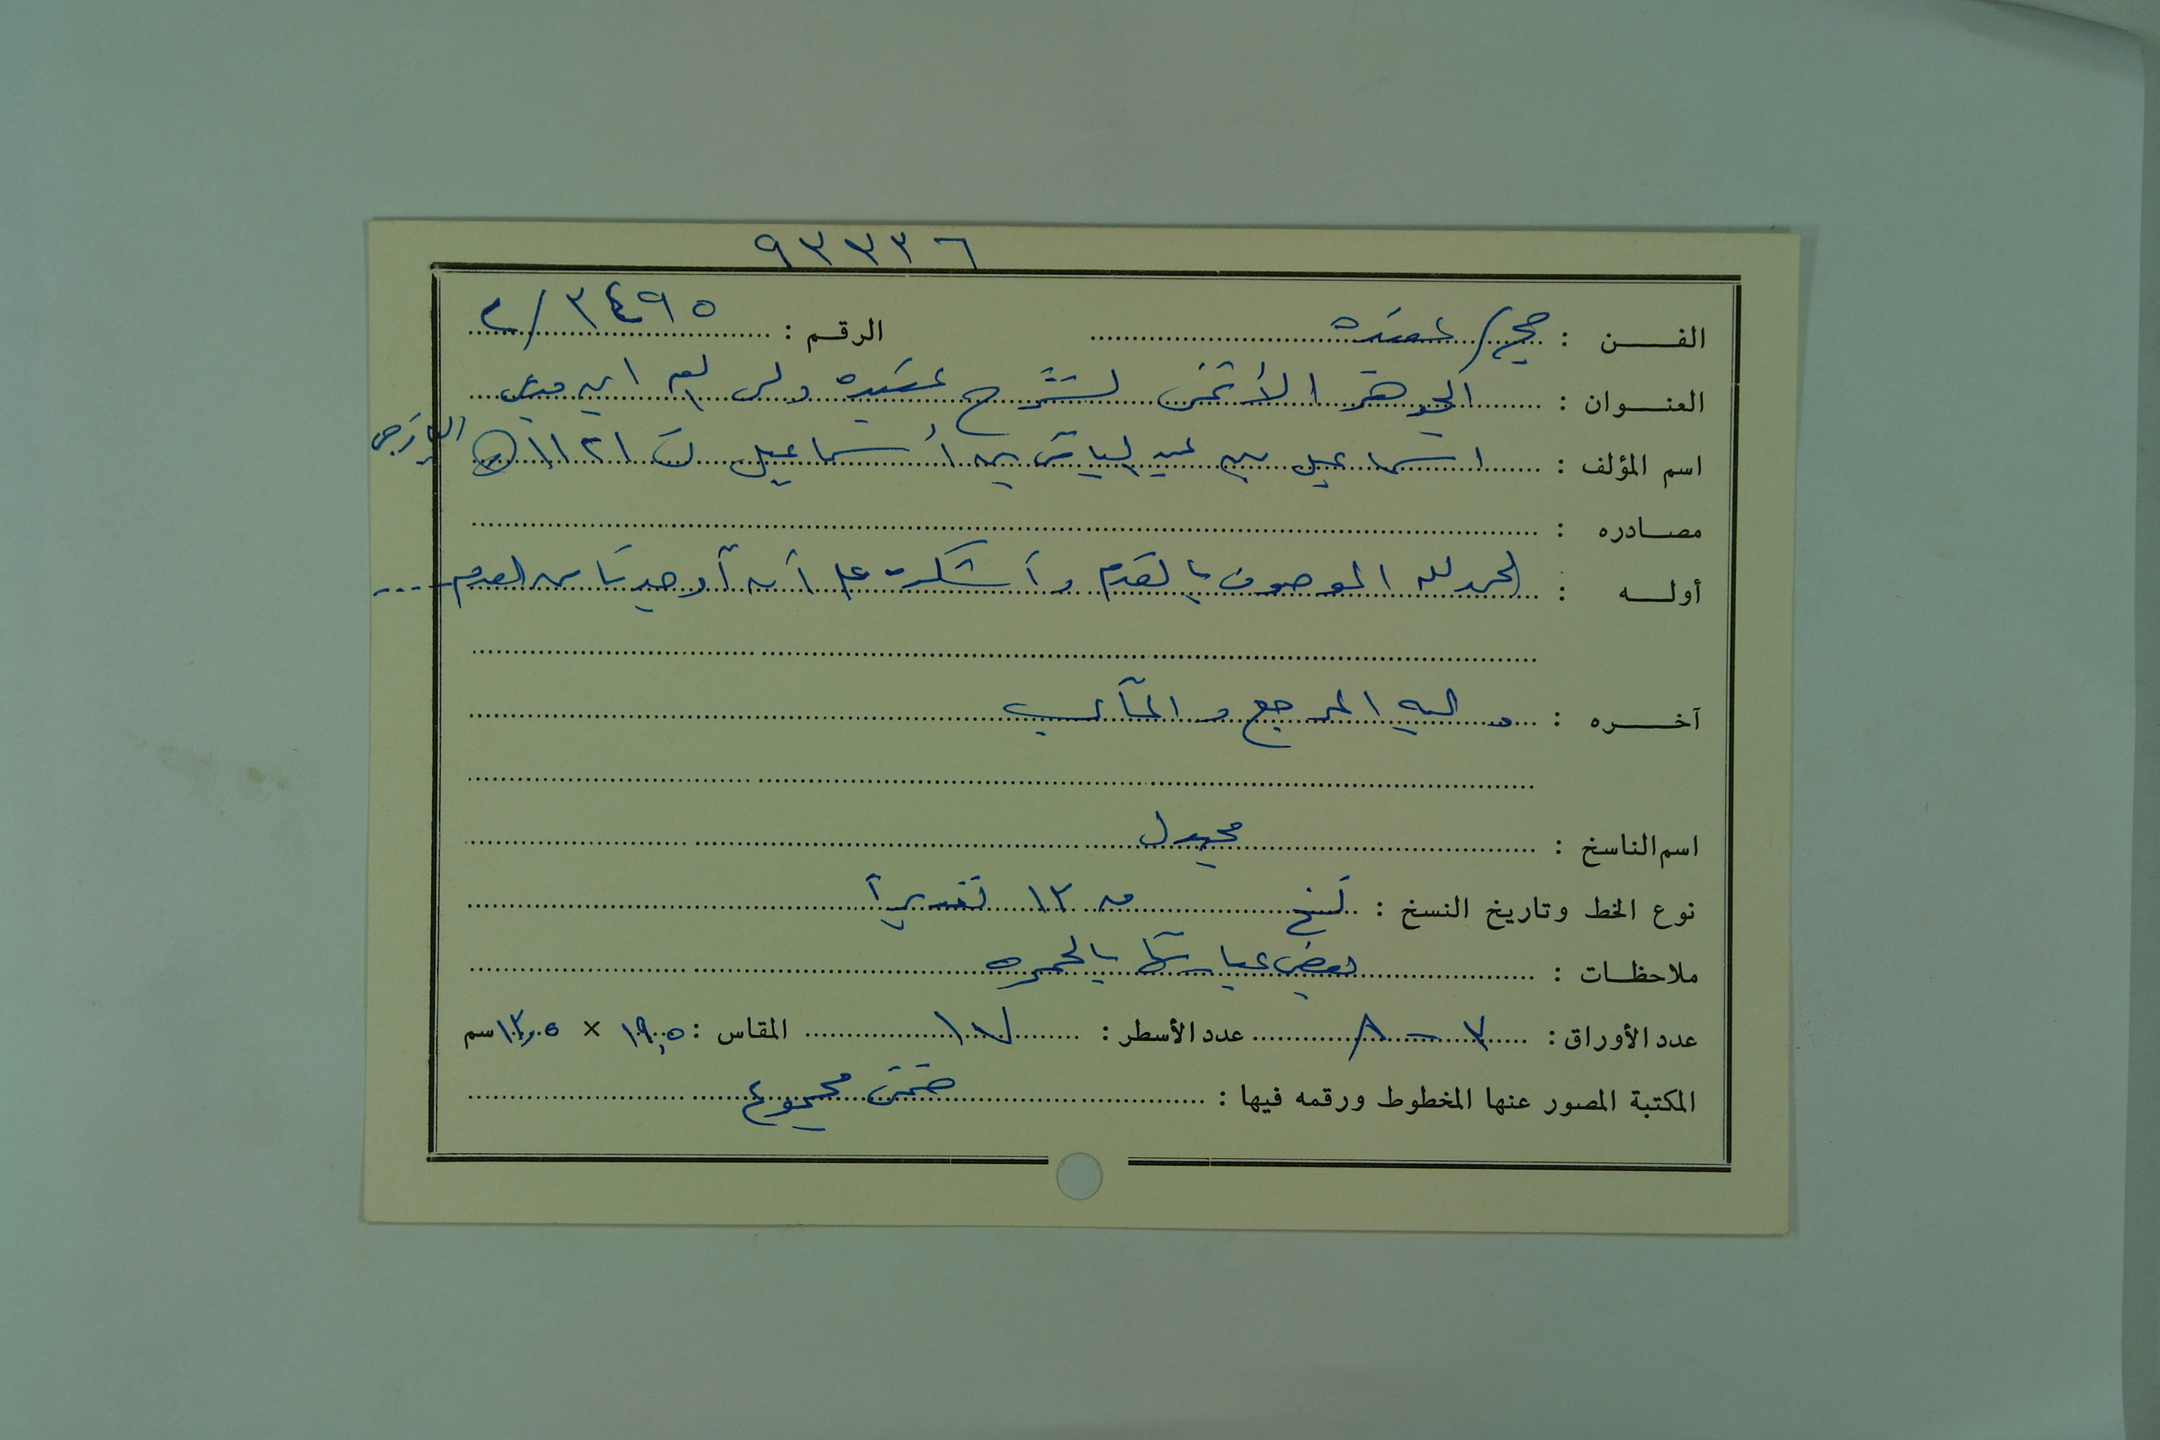 ٩٣٣٣٦
الفن : صح / عقيدة الرقم : ٣٤٩٥ / ٢
العنوان : الجوهر الأثمن لشرح عقيدة ولى الله
اسم المؤلف : اسماعيل بن عبد الباقي بن اسماعيل ت ١١٢١ هـ اليازجي
مصادره :
أوله : الحمد لله الموصوف بالقدم وأشكره على أن أوجدنا من العدم ....
آخره : واليه المرجع والمآب
اسم الناسخ : مجهول
نوع الخط وتاريخ النسخ : نسخ ق ١٢ تقديراً
ملاحظات : بعض عباراتها بالحمرة
عدد الأوراق : ٧ - ٨ عدد الأسطر : ١٧ المقاس : ١٩,٥ × ١٣,٥ سم
المكتبة المصور عنها المخطوط ورقمه فيها : ضمن مجموع